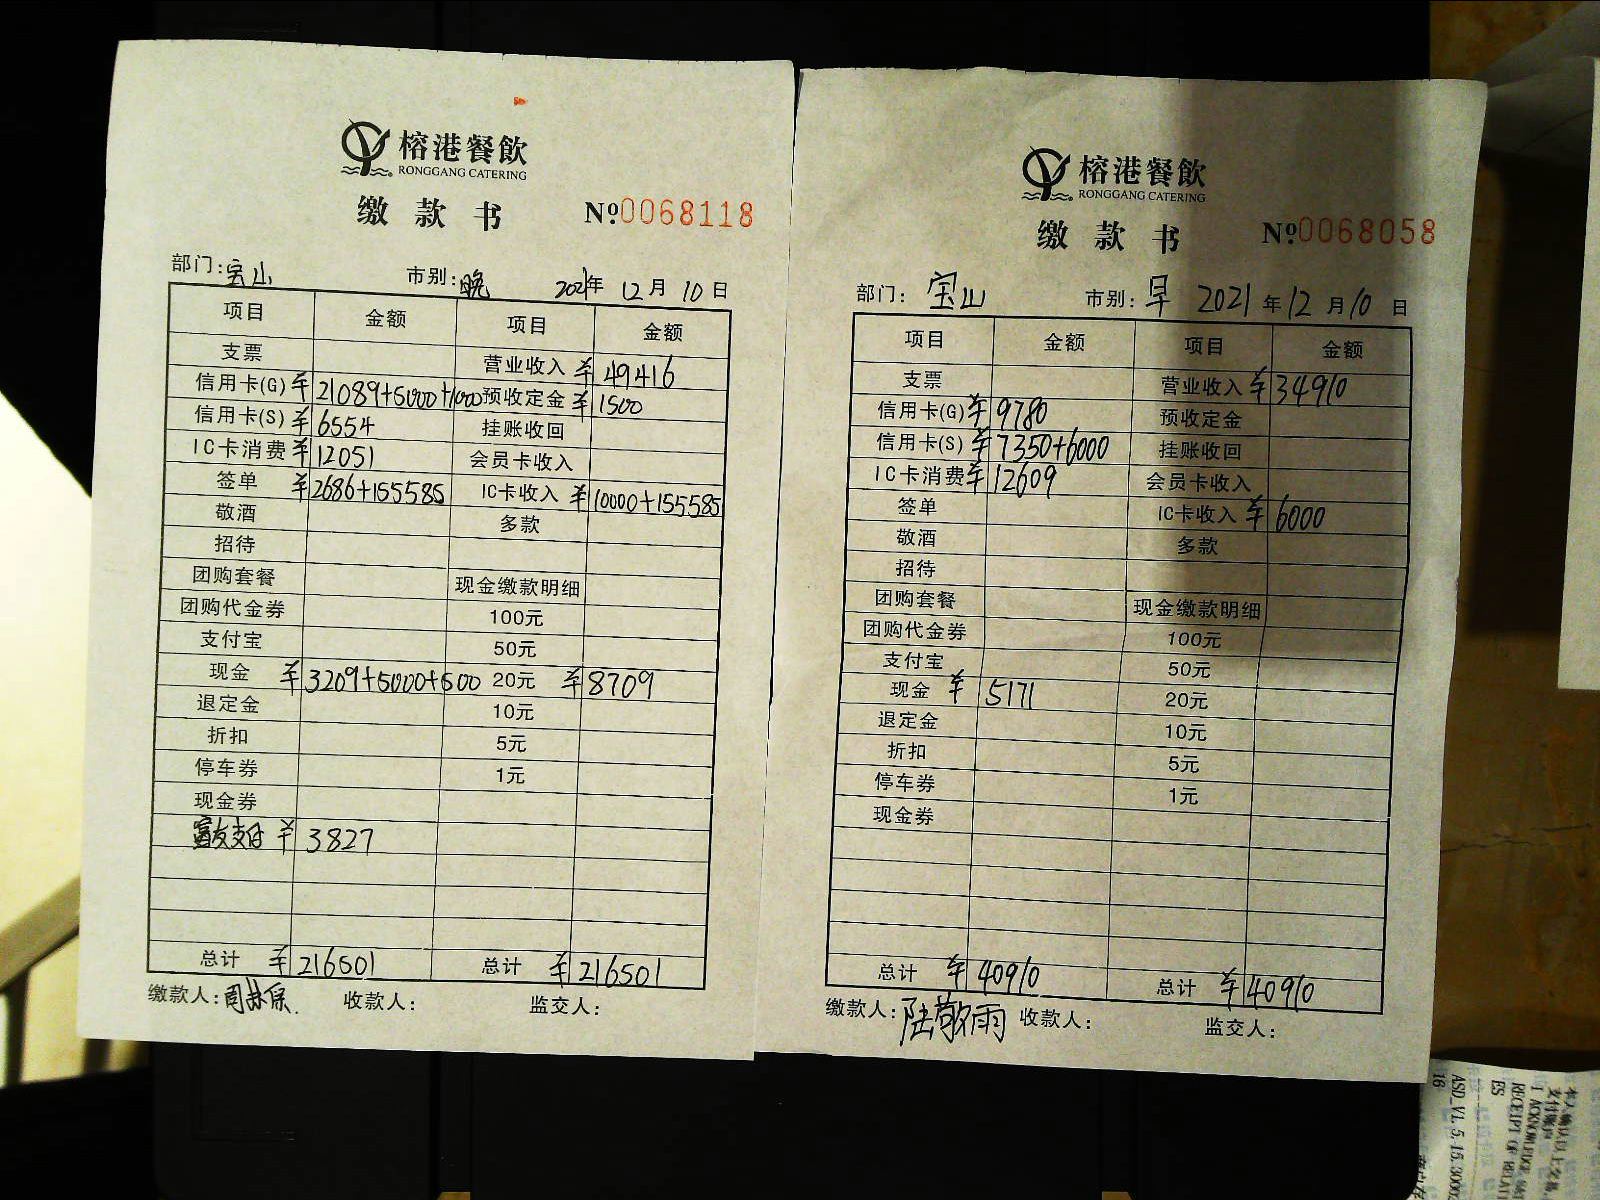 榕港餐飲
RONGGANG CATERING
缴款书 №0068118
部门:宝山 市别:晚 2021年12月10日
项目 金额 项目 金额
支票 营业收入 ¥49416
信用卡(G) ¥21089+5000+1000 预收定金 ¥1500
信用卡(S) ¥6554 挂账收回
IC卡消费 ¥12051 会员卡收入
签单 ¥2686+155585 IC卡收入 ¥10000+155585
敬酒 多款
招待
团购套餐 现金缴款明细
团购代金券 100元
支付宝 50元
现金 ¥3209+5000+500 20元 ¥8709
退定金 10元
折扣 5元
停车券 1元
现金券
富友支付 ¥3827
总计 ¥216501 总计 ¥216501
缴款人: 收款人: 监交人:
榕港餐飲
RONGGANG CATERING
缴款书 №0068058
部门:宝山 市别:早 2021年12月10日
项目 金额 项目 金额
支票 营业收入 ¥34910
信用卡(G) ¥9780 预收定金
信用卡(S) ¥7350+6000 挂账收回
IC卡消费 ¥12609 会员卡收入
签单 IC卡收入 ¥6000
敬酒 多款
招待
团购套餐 现金缴款明细
团购代金券 100元
支付宝 50元
现金 ¥5171 20元
退定金 10元
折扣 5元
停车券 1元
现金券
总计 ¥40910 总计 ¥40910
缴款人:陆敬雨 收款人: 监交人:
本人确认以上交易
I ACKNOWLEDGE
RECEIPT OF RELATI
ES
ASD_V1.5.15.3000
16